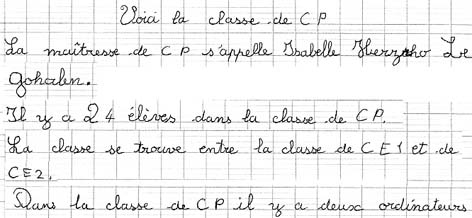 Voici la classe de CP
La maîtresse de CP s'appelle Isabelle Herzoho Le
Gohalen.
Il y a 24 élèves dans la classe de CP.
La classe se trouve entre la classe de CE1 et de
CE2.
Dans la classe de CP il y a deux ordinateurs